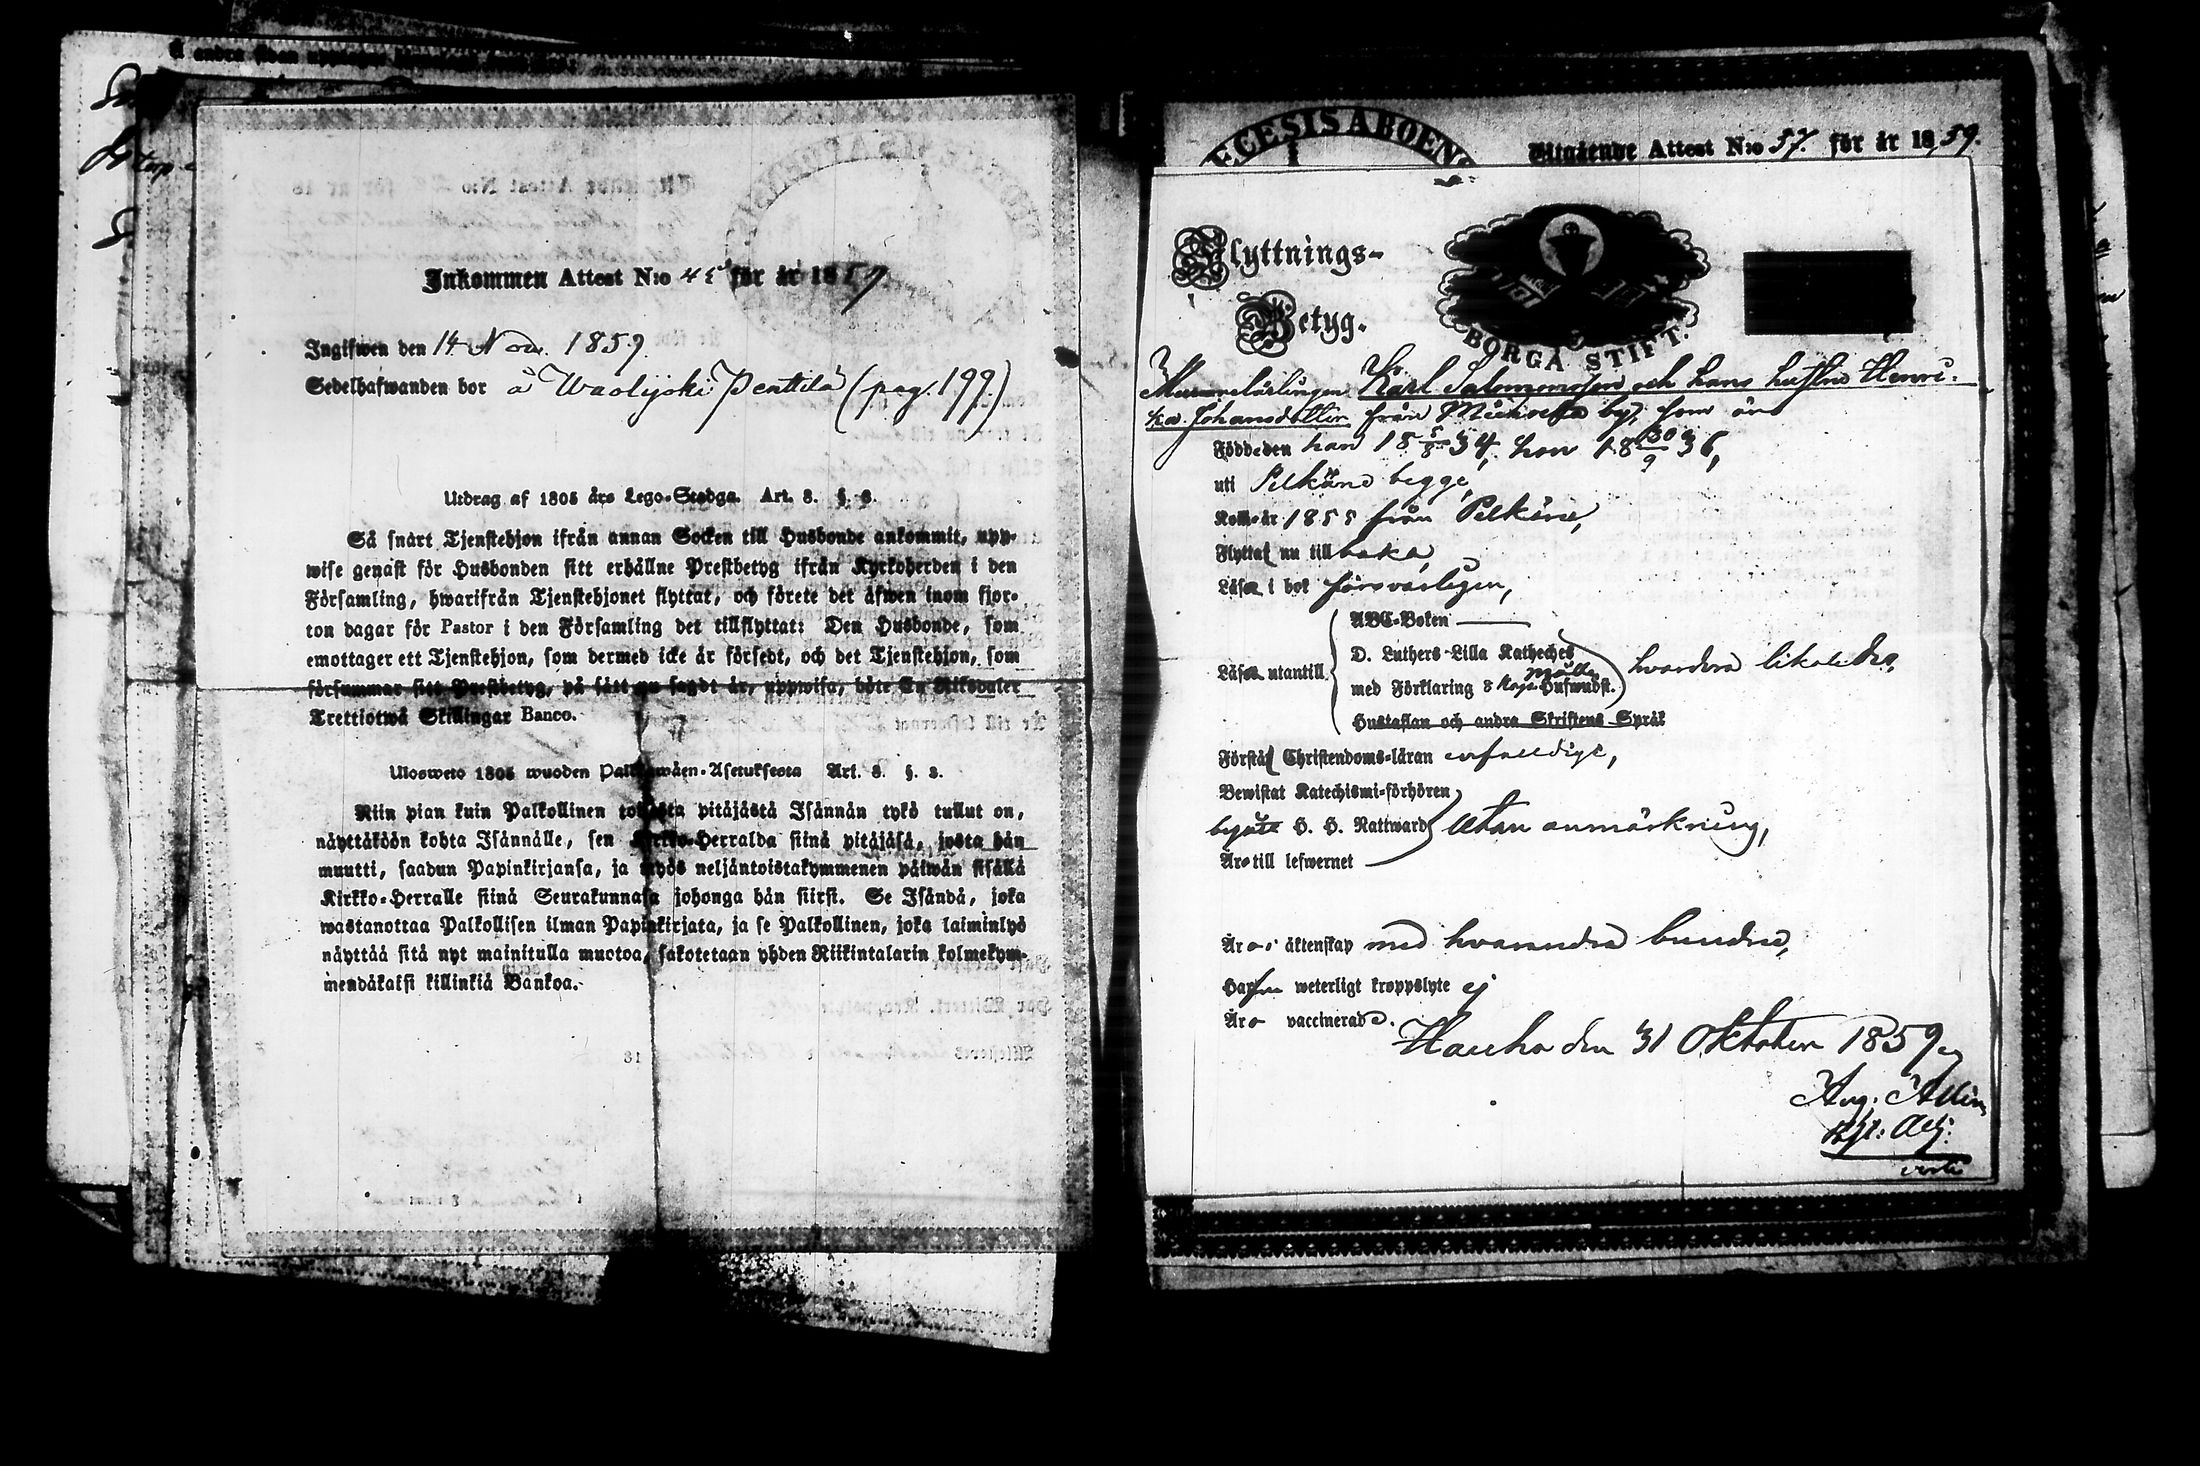 Inkommen Attest N:o 45 för år 1859
Ingifwen den 14 Nov. 1859.
Sedelhafwanden bor å Waolijoki Penttilä (pag. 199.)
Utdrag af 1805 års Lego-Stadga. Art. 3. §. 3.
Så snart Tjenstehjon ifrån annan Socken till Husbonde ankommit, upp-
wise genast för Husbonden sitt erhållne Prestbetyg ifrån Kyrkoherden i den
Församling, hwarifrån Tjenstehjonet flyttat, och förete det äfwen inom fjor-
ton dagar för Pastor i den Församling det tillflyttat: Den Husbonde, som
emottager ett Tjenstehjon, som dermed icke är försedt, och det Tjenstehjon, som
försummar sitt Prestbetyg, på sätt nu sagdt är, uppwisa, böte En Riksdaler
Trettiotwå Skillingar Banco.
Ulosweto 1805 wuoden Palkkawäen-Asetuksesta Art. 3. §. 3.
Niin pian kuin Palkollinen toisesta pitäjästä Isännän tykö tullut on,
näyttäköön kohta Isännälle, sen Kirkko-Herralda siinä pitäjäsä, josta hän
muutti, saadun Papinkirjansa, ja myös neljäntoistakymmenen päiwän sisällä
Kirkko-Herralle siinä Seurakunnasa johonga hän siirsi. Se Isändä, joka
wastanottaa Palkollisen ilman Papinkirjata, ja se Palkollinen, joka laiminlyö
näyttää sitä nyt mainitulla muotoa, sakotetaan yhden Riikintalarin kolmekym-
mendäkaksi killinkiä Bankoa.
ECESIS ABOEN
Utgående Attest N:o 57. för år 1859.
Flyttnings-
Betyg.
BORGÅ STIFT.
Murarelärlingen Karl Salomonsson och hans hustru Henri-
ka Johansdotter från by, som äro
Födde den han 18 5/8 34, hon 18 30/9 36,
uti Pelkäne begge,
Kom år 1855 från Pelkäne,
Flytta nu tillbaka,
Läsa i bok försvarligen,
ABC-Boken
D. Luthers Lilla Katheches
Läsa utantill med Förklaring 8 kap. Hufwudst. hvardera likaledes,
Hustaflan och andra Skriftens Språk
Förstå Christendoms-läran enfaldigt,
Bewistat Katechismi-förhören
begått H. H. Nattward utan anmärkning,
Äro till lefwernet
Äro i äktenskap med hvarandra bundne,
Hafwa weterligt kroppslyte ej
Äro vaccinerade.
Hauho den 31 Oktober 1859,
Aug.
Adj.